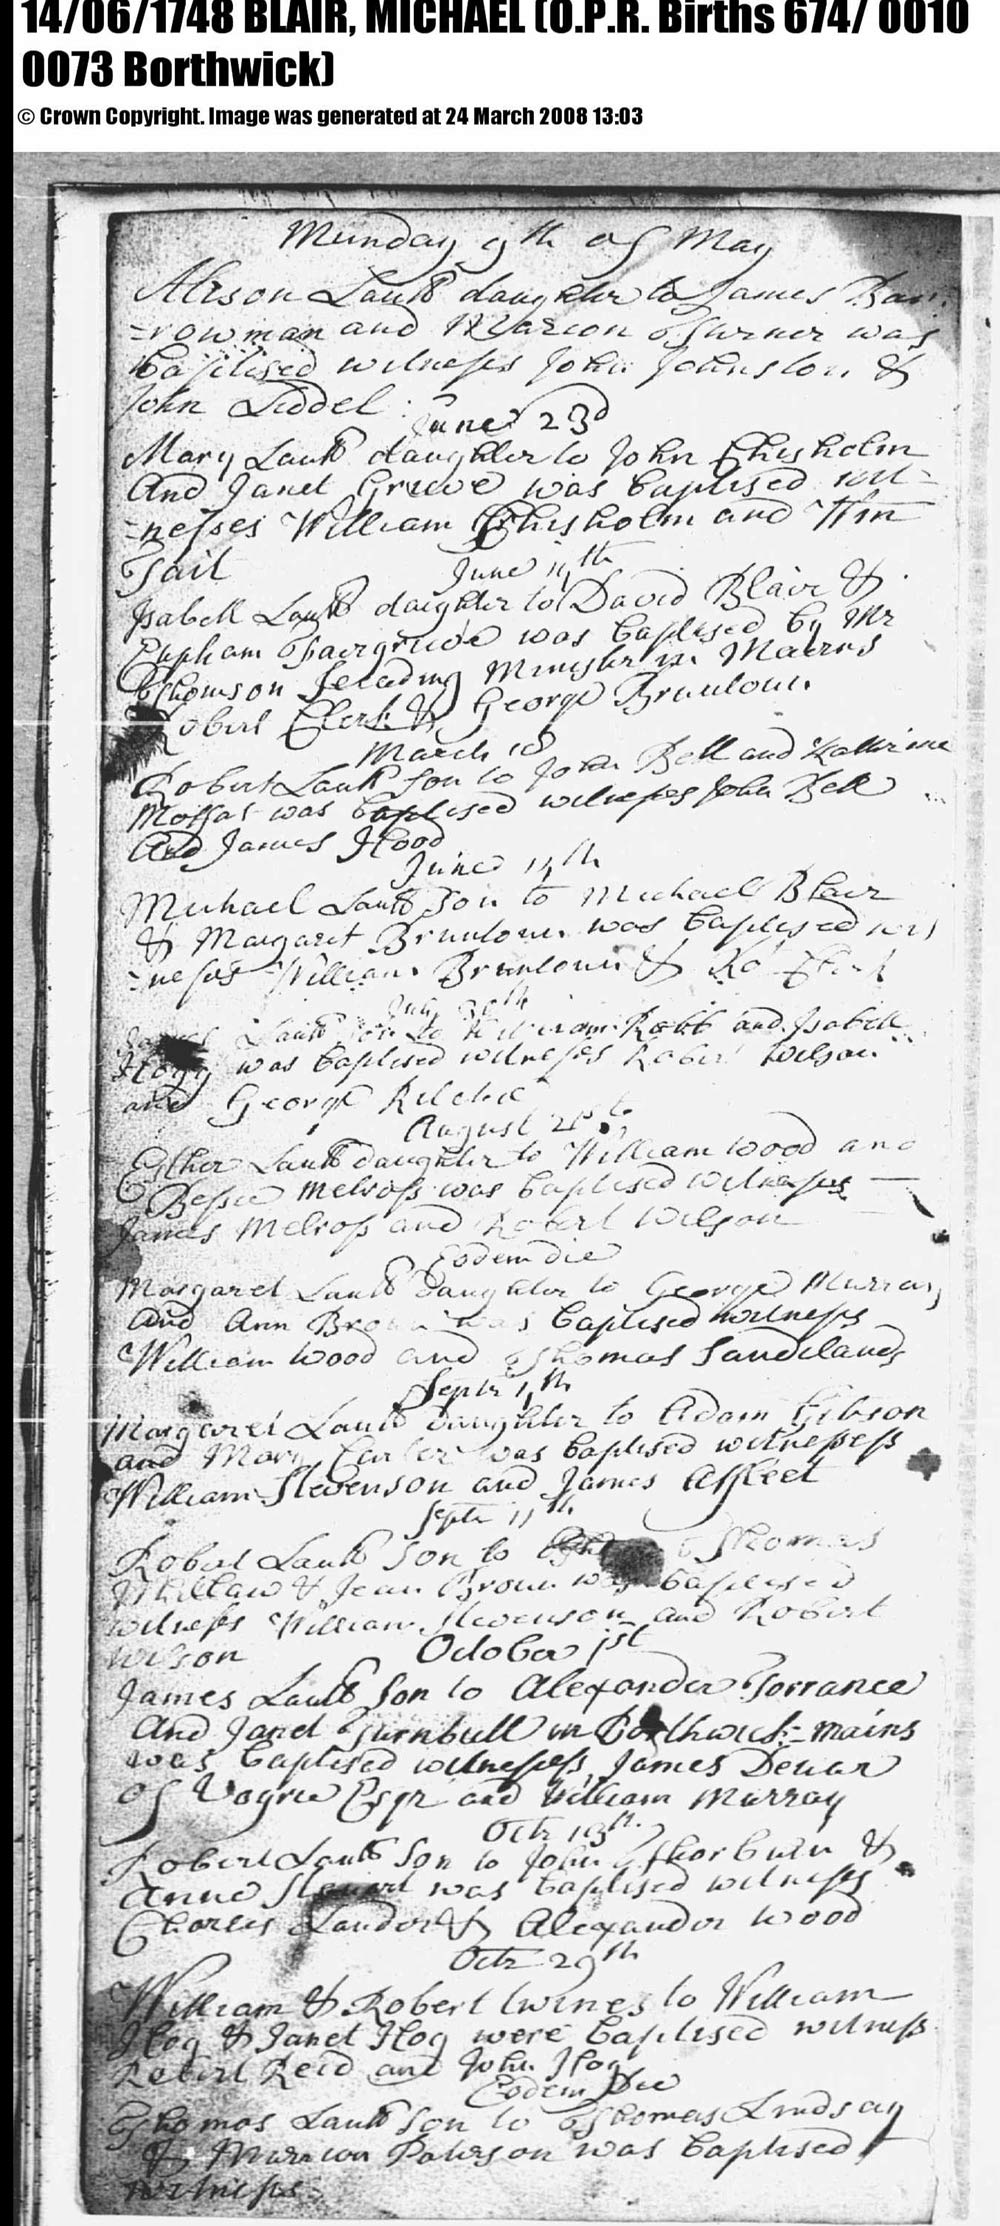 14/06/1748 BLAIR, MICHAEL (O.P.R. Births 674/ 0010
0073 Borthwick)
© Crown Copyright. Image was generated at 24 March 2008 13:03
Munday 9th of May
Alison Laull daughter to James Bar
-rowman and Marion Turner was
baptised witnesses John Johnston &
John Liddel
June 23d
Mary Laull daughter to John Chisholm
And Janet Grieve was baptised wit=
=nesses William Chisholm and Wm
Tait
June 11th
Isabell Laull daughter to David Blair &
Eupham Fairgrieve was baptised by Mr
Thomson Minister in
Robert Clerk & George Brunloun
March 18
Robert Laull Son to John Bell and Katherine
Moffat was baptised witnesses John Bell
And James Hood
June 14th
Michael Laull Son to Michael Blair
& Margaret Brunloun was baptised wit
=nesses William Brunloun & Ro
July 30th
James Laull son to William Robb and Isabell
Hogg was baptised witnesses Robert Wilson
and George Ritchie
August 21st
Esther Laull daughter to William Wood and
Bessie Melross was baptised witnesses
James Melross and Robert Wilson
Eodem die
Margaret Laull Daughter to George Murray
And Ann Brown was baptised witness
William Wood and Thomas Sandilands
Septr 4th
Margaret Laull Daughter to Adam Gibson
and Mary was baptised witnesses
William Stevenson and James Affleet
Septr 11th
Robert Laull Son to Thomas
Whitlaw & Jean Brown was baptised
witness William Stevenson and Robert
Wilson
October 1st
James Laull Son to Alexander Torrance
And Janet Turnbull in Borthwick=mains
was baptised witnesses James Dewar
of Vogrie Esqr and William Murray
Octr 13th
Robert Laull Son to John Thorburn &
Anne Stewart was baptised witness
Charles Lauder & Alexander Wood
Octr 29th
William & Robert twines to William
Hog & Janet Hog were baptised witness
Robert Reid and John Hog
Eodem Die
Thomas Laull Son to Thomas Lindsay
& Marrion Paterson was baptised
witness